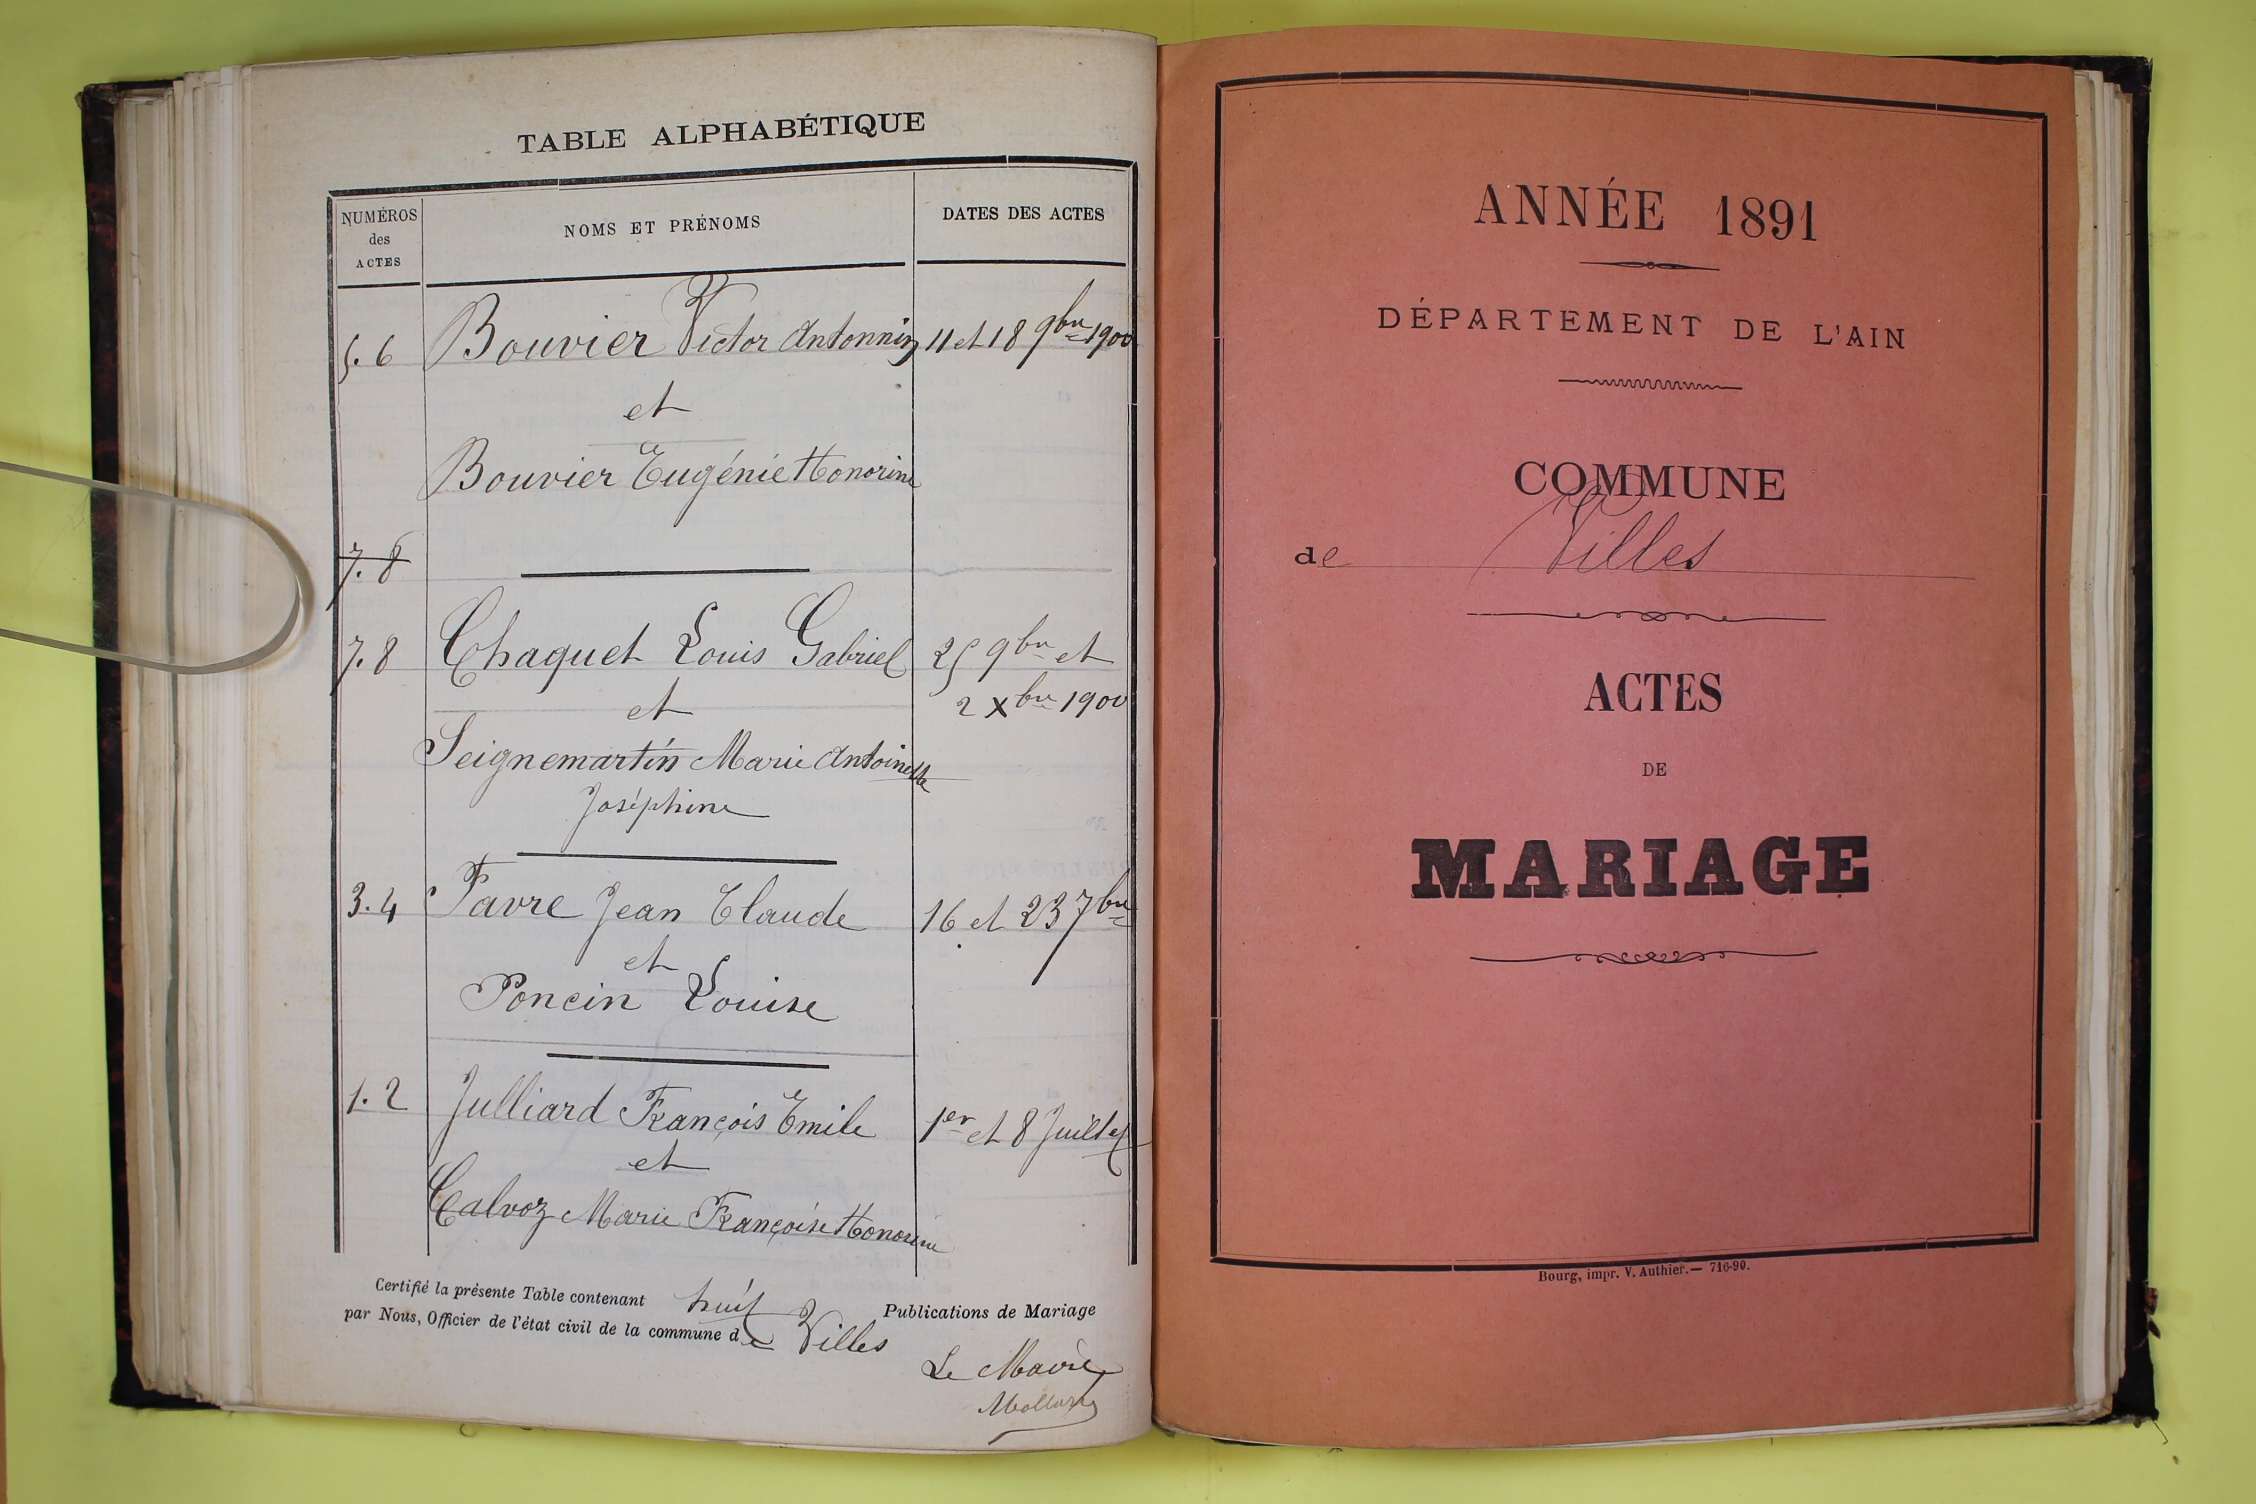 TABLE ALPHABÉTIQUE
NUMÉROS
des
ACTES
NOMS ET PRÉNOMS
DATES DES ACTES
5.6 Bouvier Victor Antonnin 11 et 18 9bre 1900
et
Bouvier Eugénie Honorine
7.8
7.8 Chaquet Louis Gabriel 25 9bre et
et 2 Xbre 1900
Seignemartin Marie Antoinette
Joséphine
3.4 Favre Jean Claude 16 et 23 7bre
et
Poncin Louise
1.2 Julliard François Emile 1er et 8 Juillet
et
Calvoz Marie Françoise Honorine
Certifié la présente Table contenant huit Publications de Mariage
par Nous, Officier de l'état civil de la commune de Villes
Le Maire
ANNÉE 1891
DÉPARTEMENT DE L'AIN
COMMUNE
de Villes
ACTES
DE
MARIAGE
Bourg, impr. V. Authier. — 716-90.